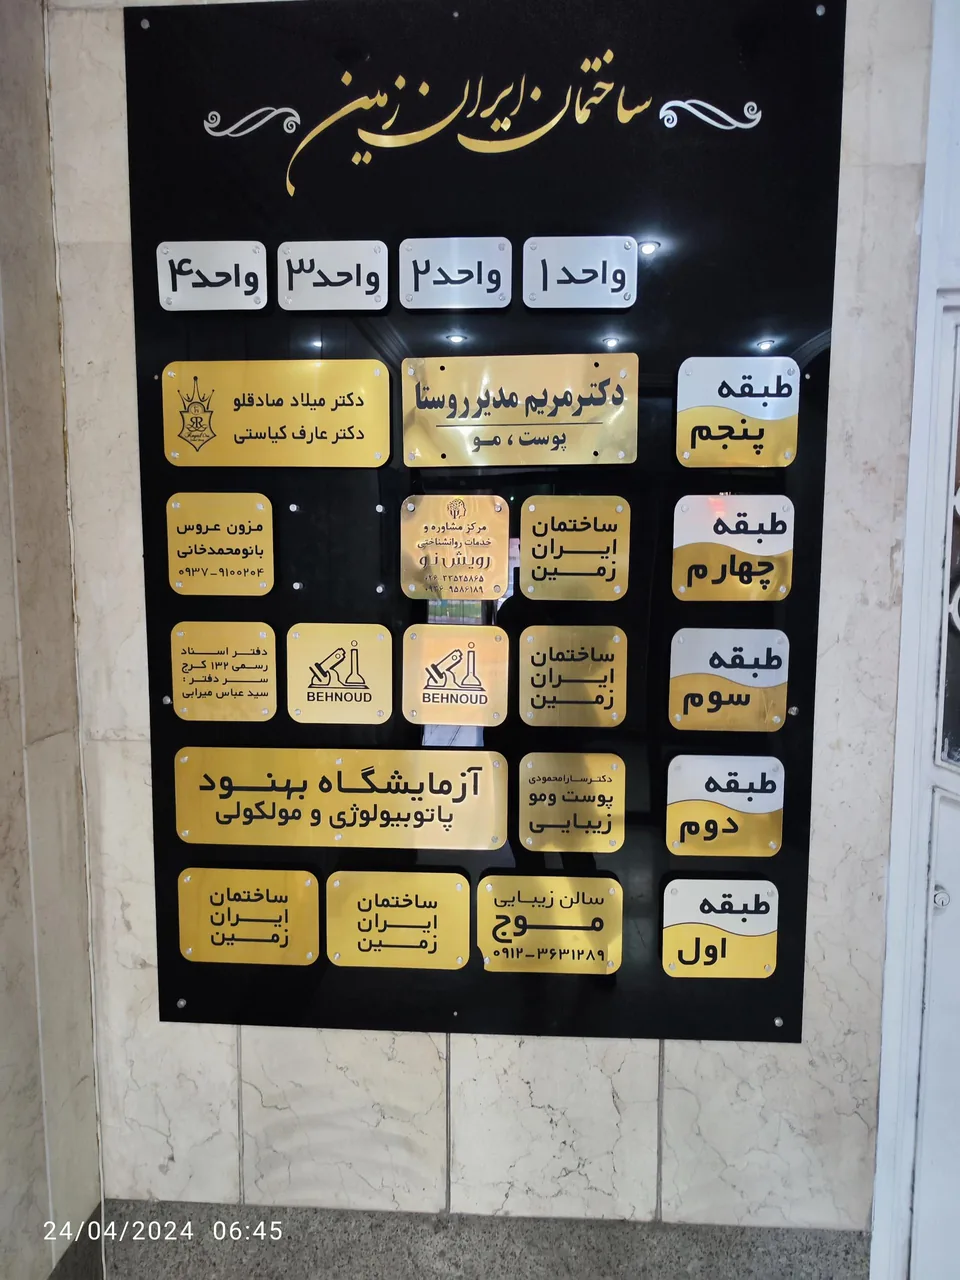 ساختمان ایران زمین
واحد ۱
واحد ۲
واحد ۳
واحد ۴
طبقه
پنجم
دکتر مریم مدیر روستا
پوست ، مو
دکتر میلاد صادقلو
دکتر عارف کیاستی
طبقه
چهارم
ساختمان
ایران
زمین
مرکز مشاوره و
خدمات روانشناختی
رویش نو
مزون عروس
بانو محمدخانی
۰۹۳۷-۹۱۰۰۲۰۴
طبقه
سوم
ساختمان
ایران
زمین
BEHNOUD
BEHNOUD
دفتر اسناد
رسمی ۱۳۲ کرج
سر دفتر :
سید عباس میرابی
طبقه
دوم
دکتر سارا محمودی
پوست و مو
زیبایی
آزمایشگاه بهنود
پاتوبیولوژی و مولکولی
طبقه
اول
سالن زیبایی
موج
۰۹۱۲-۳۶۳۱۲۸۹
ساختمان
ایران
زمین
ساختمان
ایران
زمین
24/04/2024 06:45